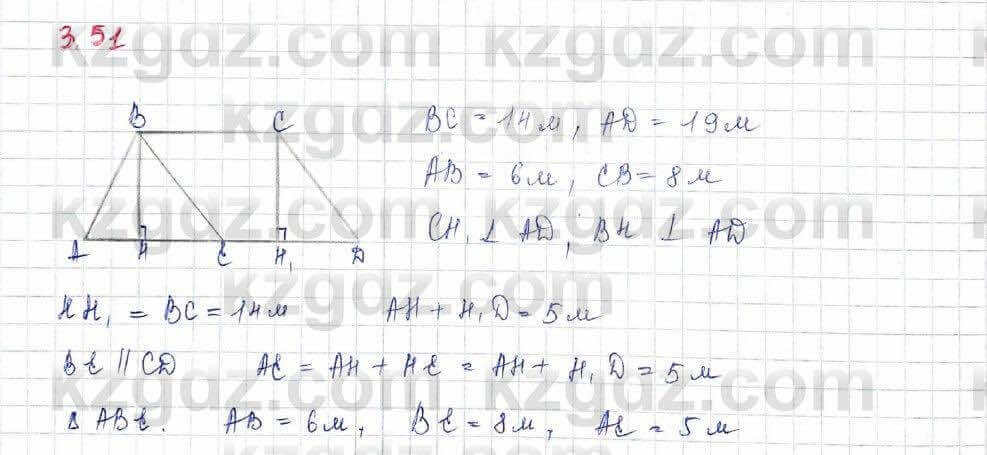 3.51
kzgdz.com kzgdz.com
B C
BC = 14 м, AD = 19 м
kzgdz.com
AB = 6 м, CB = 8 м
kzgdz.com kzgdz.com
CH₁ ⊥ AD; BH ⊥ AD
A H E H₁ D
kzgdz.com
HH₁ = BC = 14 м AH + H₁D = 5 м
BE || CD AE = AH + HE = AH + H₁D = 5 м
kzgdz.com kzgdz.com
Δ ABE. AB = 6 м, BE = 8 м, AE = 5 м